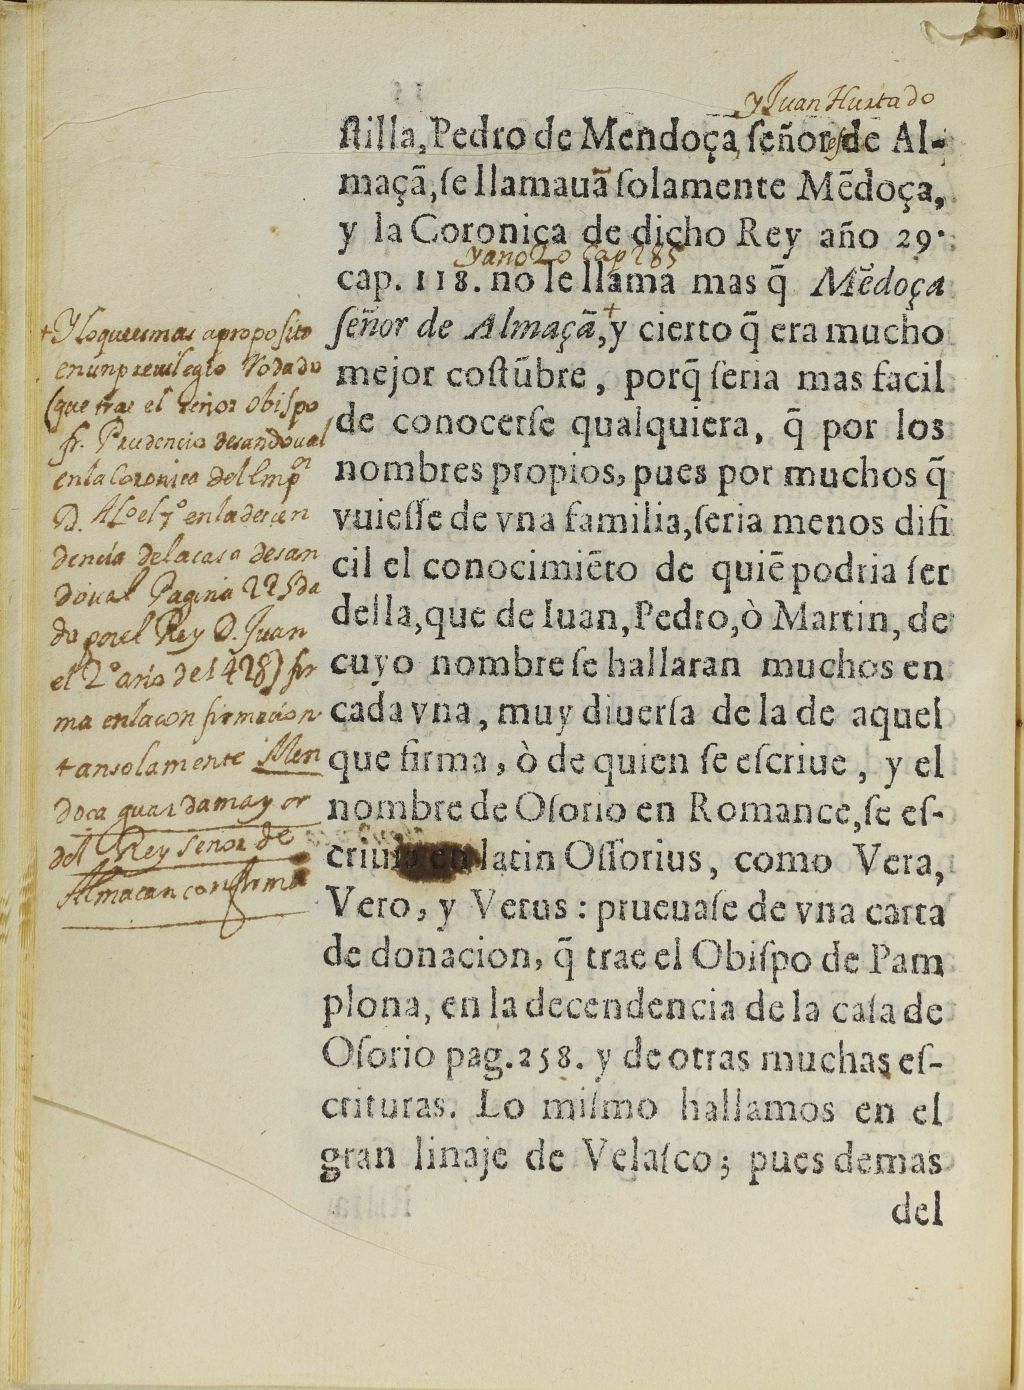 y Juan Hurtado
ſtilla, Pedro de Mendoça, ſeñores de Al-
maçã, ſe llamauã ſolamente Mẽdoça,
y la Coronica de dicho Rey año 29.
y año 20 cap 285
cap. 118. no le llama mas q̃ Mẽdoça
ſeñor de Almaçã,+ y cierto q̃ era mucho
mejor coſtũbre, porq̃ ſeria mas facil
de conocerſe qualquiera, q̃ por los
nombres propios, pues por muchos q̃
vuieſſe de vna familia, ſeria menos difi
cil el conocimiẽto de quiẽ podria ſer
della, que de Iuan, Pedro, ò Martin, de
cuyo nombre ſe hallaran muchos en
cada vna, muy diuerſa de la de aquel
que firma, ò de quien ſe eſcriue, y el
nombre de Oſorio en Romance, ſe eſ-
criuia en latin Oſſorius, como Vera,
Vero, y Verus: prueuaſe de vna carta
de donacion, q̃ trae el Obiſpo de Pam
plona, en la decendencia de la caſa de
Oſorio pag. 258. y de otras muchas eſ-
crituras. Lo miſmo hallamos en el
gran linaje de Velaſco; pues demas
del
+ Y loque es mas a proposito
en un previlegio Rodado
(que trae el señor obispo
fr. Prudencio de sandoual
en la Coronica del Empor
D. Alo el 7o en la decen
dencia de la casa de san
doual Pagina 225 da
do por el Rey D. Juan
el 2o año de 1428) fir
ma en la confirmacion
tan solamente Men
doca guarda mayor
del Rey señor de
Almacan confirma